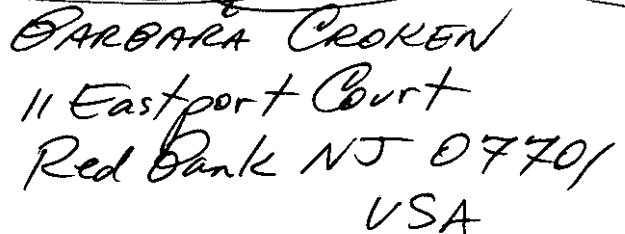 BARBARA CROKEN
11 Eastport Court
Red Bank NJ 07701
USA